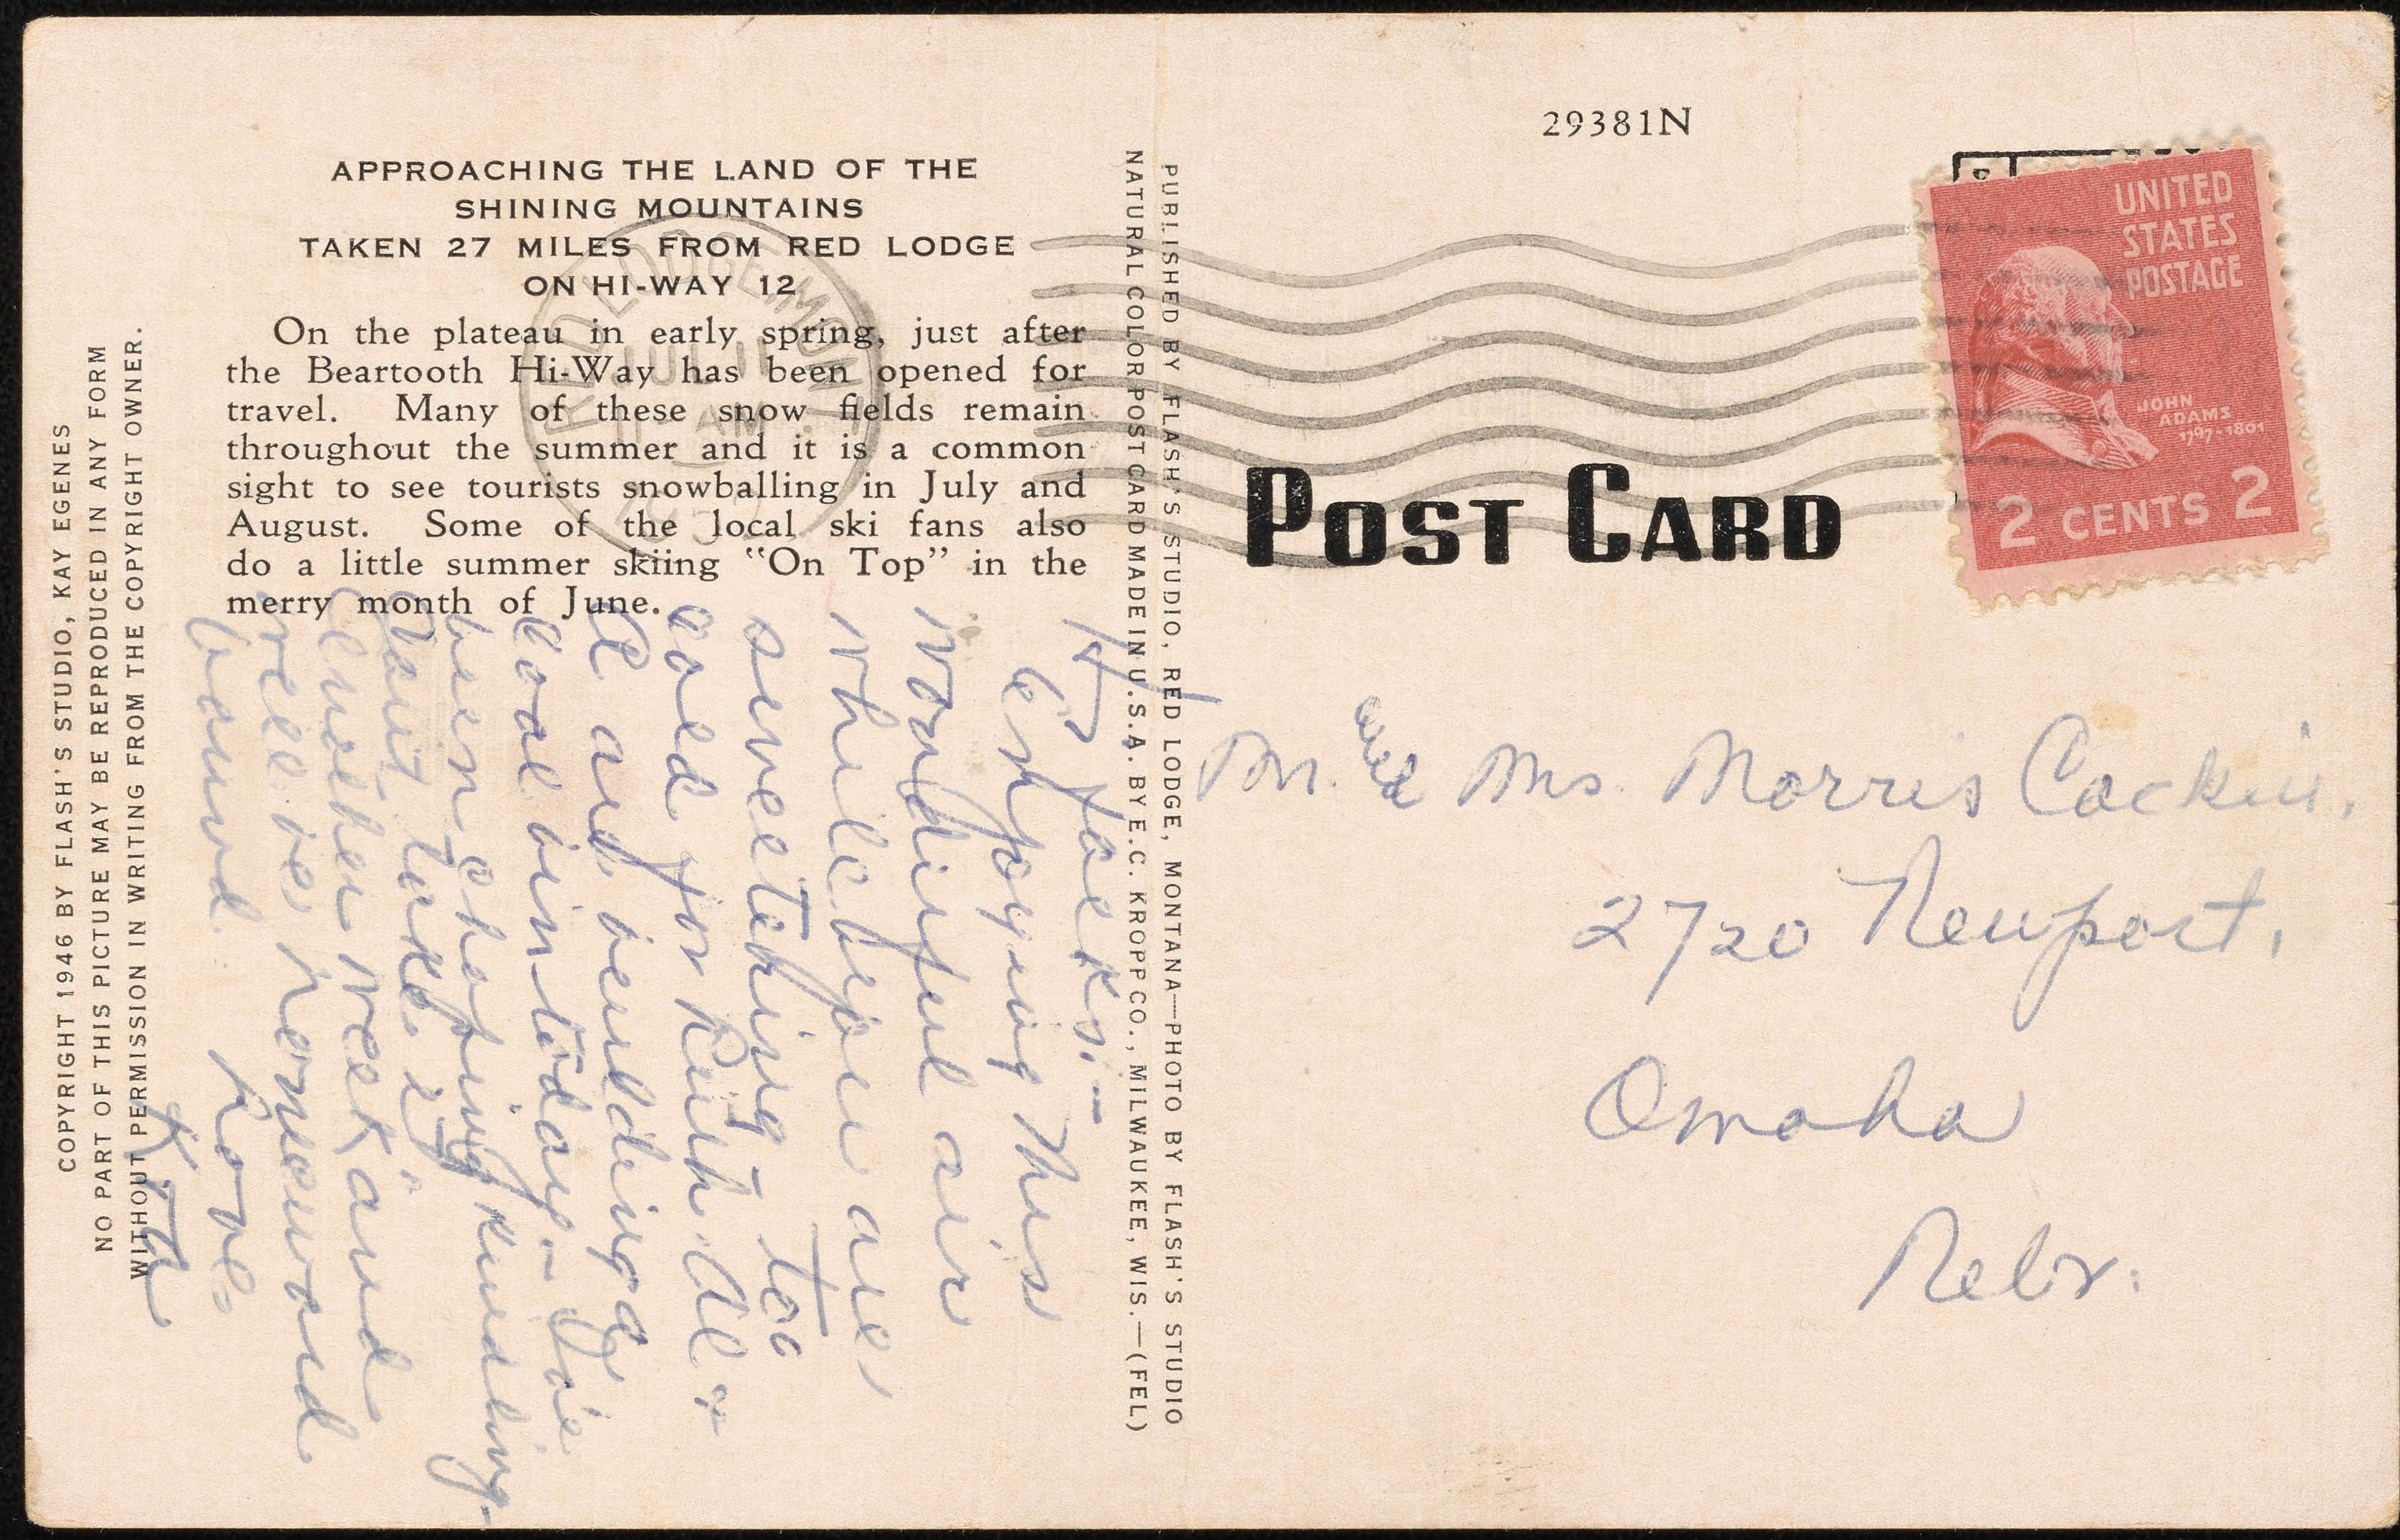 29381N
APPROACHING THE LAND OF THE
SHINING MOUNTAINS
TAKEN 27 MILES FROM RED LODGE
ON HI-WAY 12
On the plateau in early spring, just after
the Beartooth Hi-Way has been opened for
travel. Many of these snow fields remain
throughout the summer and it is a common
sight to see tourists snowballing in July and
August. Some of the local ski fans also
do a little summer skiing "On Top" in the
merry month of June.
COPYRIGHT 1946 BY FLASH'S STUDIO, KAY EGENES
NO PART OF THIS PICTURE MAY BE REPRODUCED IN ANY FORM
WITHOUT PERMISSION IN WRITING FROM THE COPYRIGHT OWNER.
PUBLISHED BY FLASH'S STUDIO, RED LODGE, MONTANA—PHOTO BY FLASH'S STUDIO
NATURAL COLOR POST CARD MADE IN U.S.A. BY E.C. KROPP CO., MILWAUKEE, WIS.—(FEL)
RED LODGE, MONT.
JUL 11
AM
POST CARD
UNITED
STATES
POSTAGE
JOHN
ADAMS
1797-1801
2 CENTS 2
Hi folks:-
Enjoying this
wonderful air
while before are
sweltering - too
cold for Ruth. Al &
Al are building a
coal bin today - I've
been chopping kindling.
Don't take it
Another week and
we'll be homeward
bound. Love
Mr. and Mrs. Morris Cackin.
2720 Newport,
Omaha
Nebr.